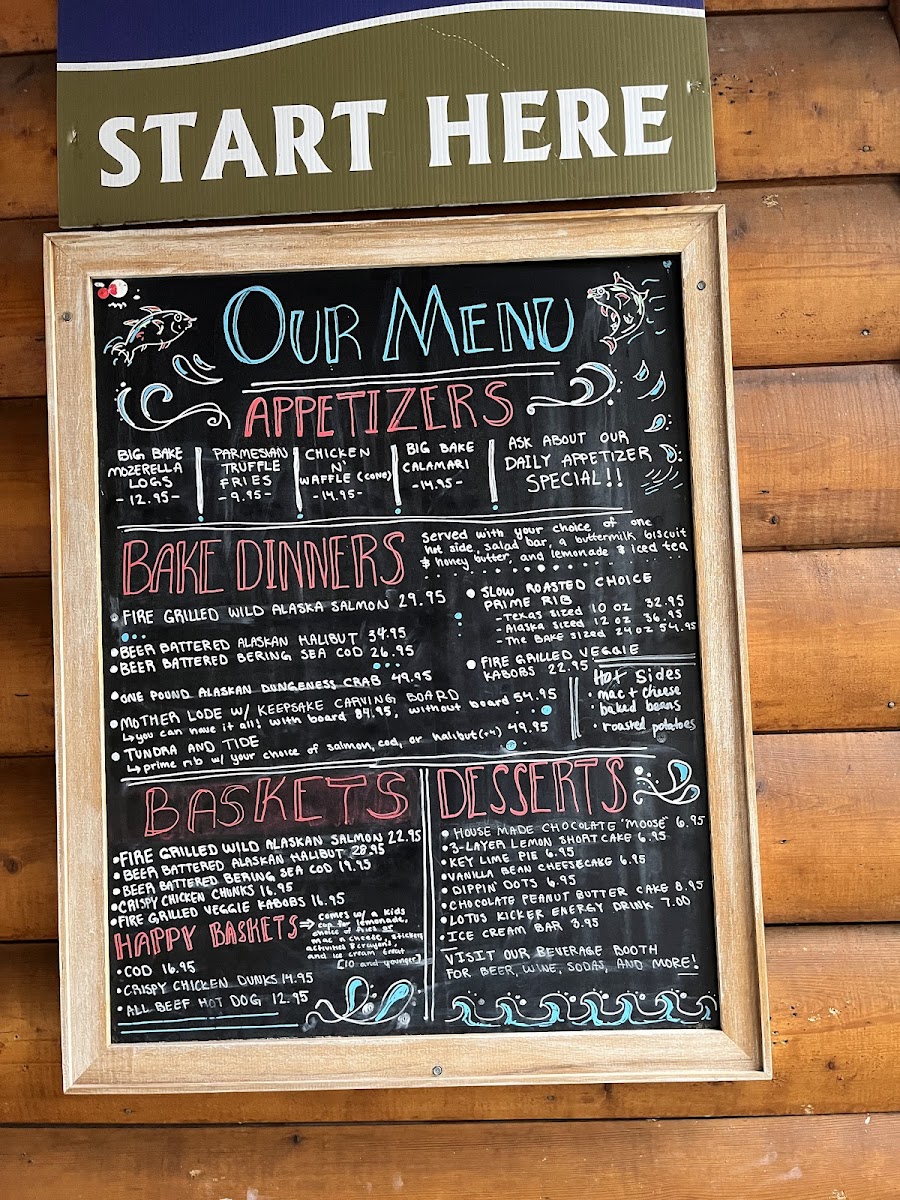 START HERE
OUR MENU
APPETIZERS
BIG BAKE
MOZERELLA
LOGS
- 12.95-
PARMESIAN
TRUFFLE
FRIES
- 9.95-
CHICKEN
N'
WAFFLE (CONE)
-14.95-
BIG BAKE
CALAMARI
-14.95-
ASK ABOUT OUR
DAILY APPETIZER
SPECIAL!!
BAKE DINNERS
served with your choice of one
hot side, salad bar, a buttermilk biscuit
& honey butter, and lemonade & iced tea
• FIRE GRILLED WILD ALASKA SALMON 29.95
• BEER BATTERED ALASKAN HALIBUT 34.95
• BEER BATTERED BERING SEA COD 26.95
• ONE POUND ALASKAN DUNGENESS CRAB 49.95
• MOTHER LODE W/ KEEPSAKE CARVING BOARD
↳ you can have it all! with board 84.95, without board 54.95
• TUNDRA AND TIDE
↳ prime rib w/ your choice of salmon, cod, or halibut(+4) 49.95
• SLOW ROASTED CHOICE
PRIME RIB
- TEXAS SIZED 10 OZ 32.95
- Alaska sized 12 oz 36.95
- The BAKE SIZED 24 OZ 54.95
• FIRE GRILLED VEGGIE
KABOBS 22.95
Hot Sides
• mac + cheese
• baked beans
• roasted potatoes
BASKETS
• FIRE GRILLED WILD ALASKAN SALMON 22.95
• BEER BATTERED ALASKAN HALIBUT 28.95
• BEER BATTERED BERING SEA COD 19.95
• CRISPY CHICKEN CHUNKS 16.95
• FIRE GRILLED VEGGIE KABOBS 16.95
HAPPY BASKETS
⇒ comes w/ a kids
cup for lemonade,
choice of fries or
mac n cheese, stickers
activities & crayons,
and ice cream treat
[10 and younger]
• COD 16.95
• CRISPY CHICKEN DUNKS 14.95
• ALL BEEF HOT DOG 12.95
DESSERTS
• HOUSE MADE CHOCOLATE "MOOSE" 6.95
• 3-LAYER LEMON SHORTCAKE 6.95
• KEY LIME PIE 6.95
• VANILLA BEAN CHEESECAKE 6.95
• DIPPIN' DOTS 6.95
• CHOCOLATE PEANUT BUTTER CAKE 8.95
• LOTUS KICKER ENERGY DRINK 7.00
• ICE CREAM BAR 3.95
VISIT OUR BEVERAGE BOOTH
FOR BEER, WINE, SODAS, AND MORE!